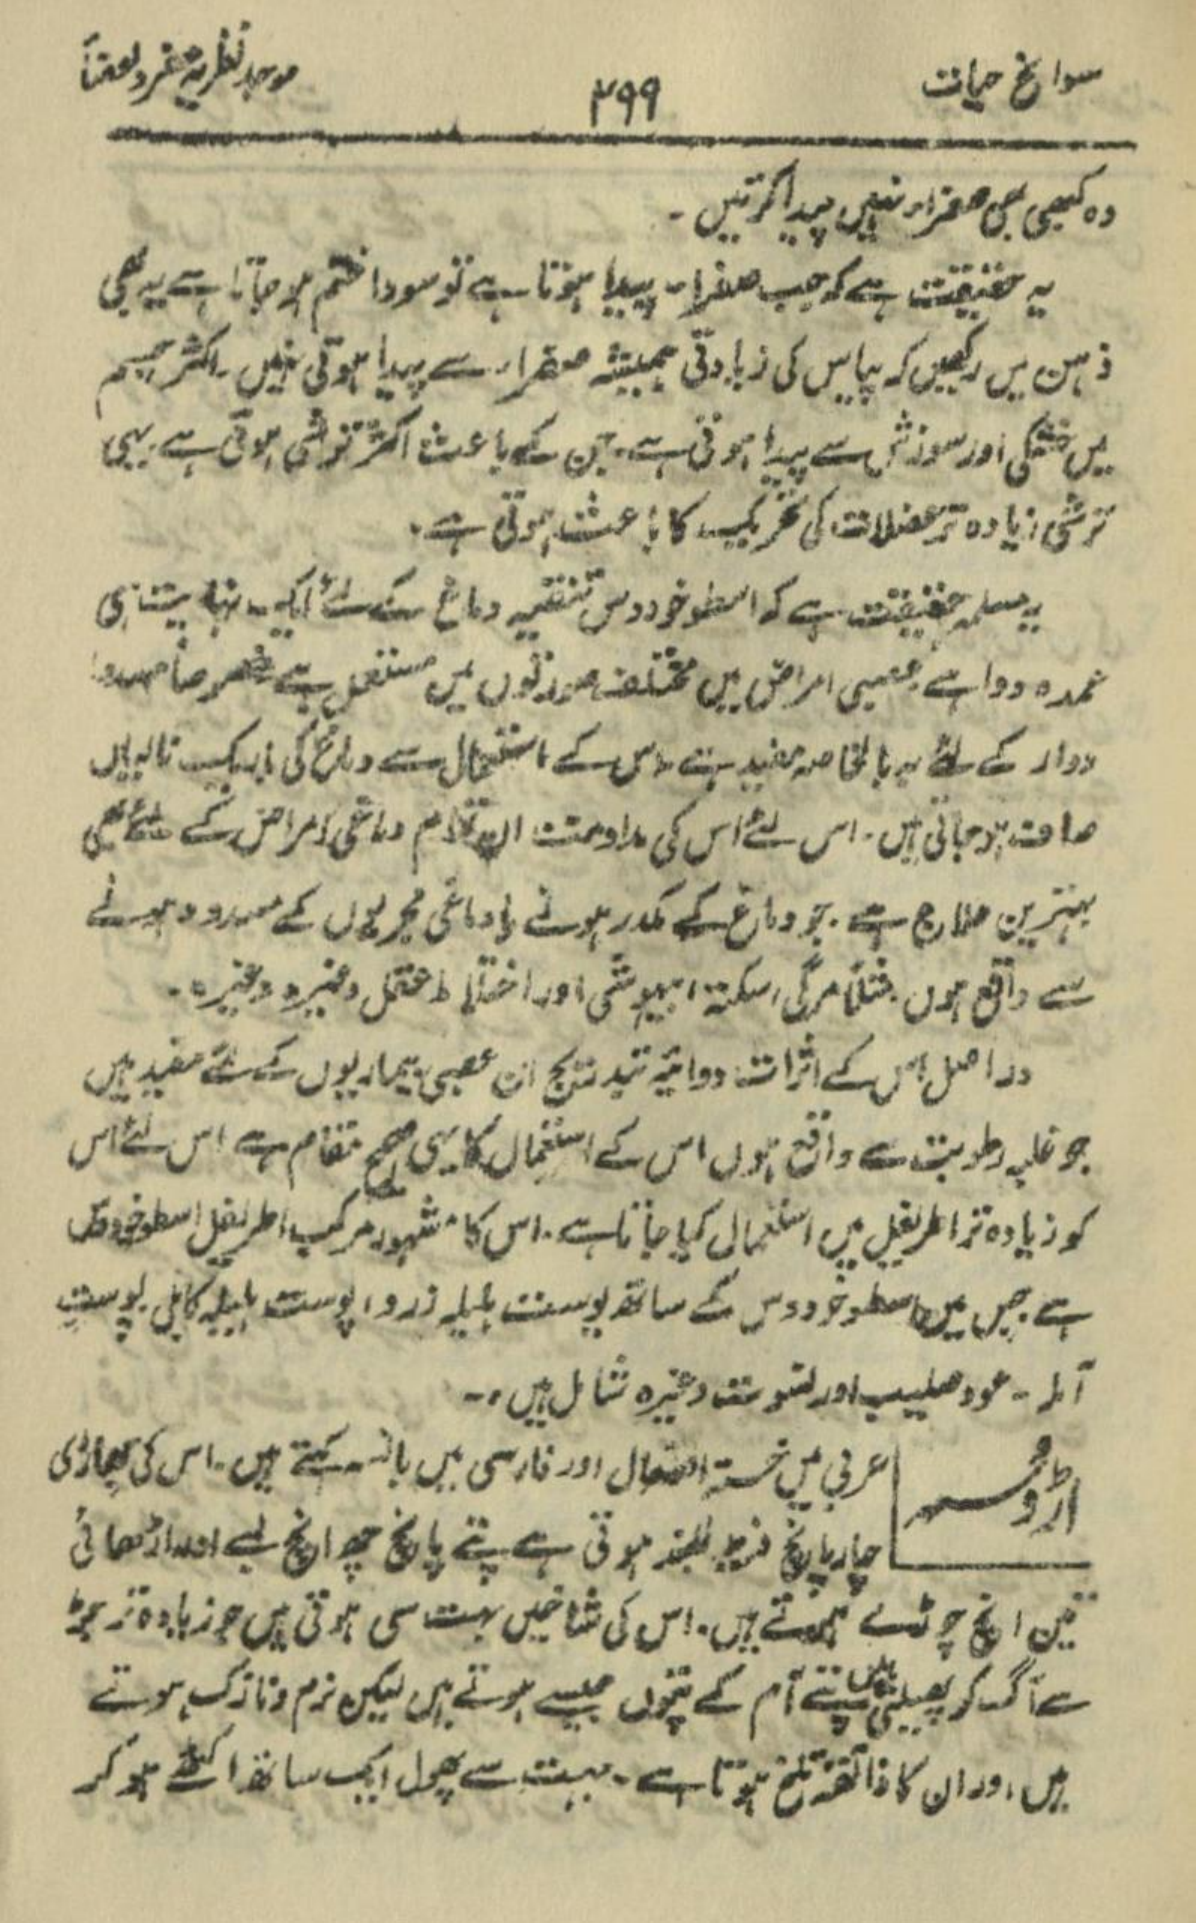 سوانح حیات
۲۹۹
موجد نظریہ مفرد اعضاء
وہ کبھی بھی صفراء نہیں پیدا کرتیں ۔
یہ حقیقت ہے کہ جب صفراء پیدا ہوتا ہے تو سودا ختم ہو جاتا ہے یہ بھی
ذہن میں رکھیں کہ پیاس کی زیادتی ہمیشہ صفراء سے پیدا ہوتی نہیں ۔ اکثر جسم
میں خشکی اور سوزش سے پیدا ہوتی ہے ۔ جن کے باعث اکثر ترشی ہوتی ہے ۔ یہی
ترشی زیادہ تر عضلات کی تحریک کا باعث ہوتی ہے ۔
یہ مسلمہ حقیقت ہے کہ اسطوخودوس تنقیہ دماغ کے لئے ایک نہایت ہی
عمدہ دوا ہے عصبی امراض میں مختلف صورتوں میں مستعمل ہے خصوصاً
دوار کے لئے یہ بالخاصہ مفید ہے ۔ اس کے استعمال سے دماغ کی باریک نالیاں
صاف ہو جاتی ہیں ۔ اس لئے اس کی مداومت ان تمام دماغی امراض کے لئے بھی
بہترین علاج ہے ۔ جو دماغ کے مکدر ہونے یا دماغی مجریوں کے مسدود ہونے
سے واقع ہوں ۔ مثلاً مرگی ، سکتہ ، بیہوشی اور اختلاط عقل وغیرہ وغیرہ ۔
در اصل اس کے اثرات دوائیہ بتدریج ان عصبی بیماریوں کے لئے مفید ہیں
جو غلبہ رطوبت سے واقع ہوں اس کے استعمال کا یہی صحیح مقام ہے اس لئے اس
کو زیادہ تر اطریفل میں استعمال کیا جاتا ہے ۔ اس کا مشہور مرکب اطریفل اسطوخودوس
ہے جس میں اسطوخودوس کے ساتھ پوست ہلیلہ زرد ، پوست ہلیلہ کابلی پوست
آملہ ۔ عود صلیب اور افتیمون وغیرہ شامل ہیں ۔
اڑوسہ
عربی میں اور فارسی میں بانسہ کہتے ہیں ۔ اس کی جھاڑی
چار پانچ فیٹ بلند ہوتی ہے پتے پانچ چھ انچ لمبے اور اڑھائی
تین انچ چوڑے ہوتے ہیں ۔ اس کی شاخیں بہت سی ہوتی ہیں جو زیادہ تر جڑ
سے اگ کر پھیلتی ہیں پتے آم کے پتوں جیسے ہوتے ہیں لیکن نرم و نازک ہوتے
ہیں ، اور ان کا ذائقہ تلخ ہوتا ہے ۔ بہت سے پھول ایک ساتھ اکٹھے ہو کر